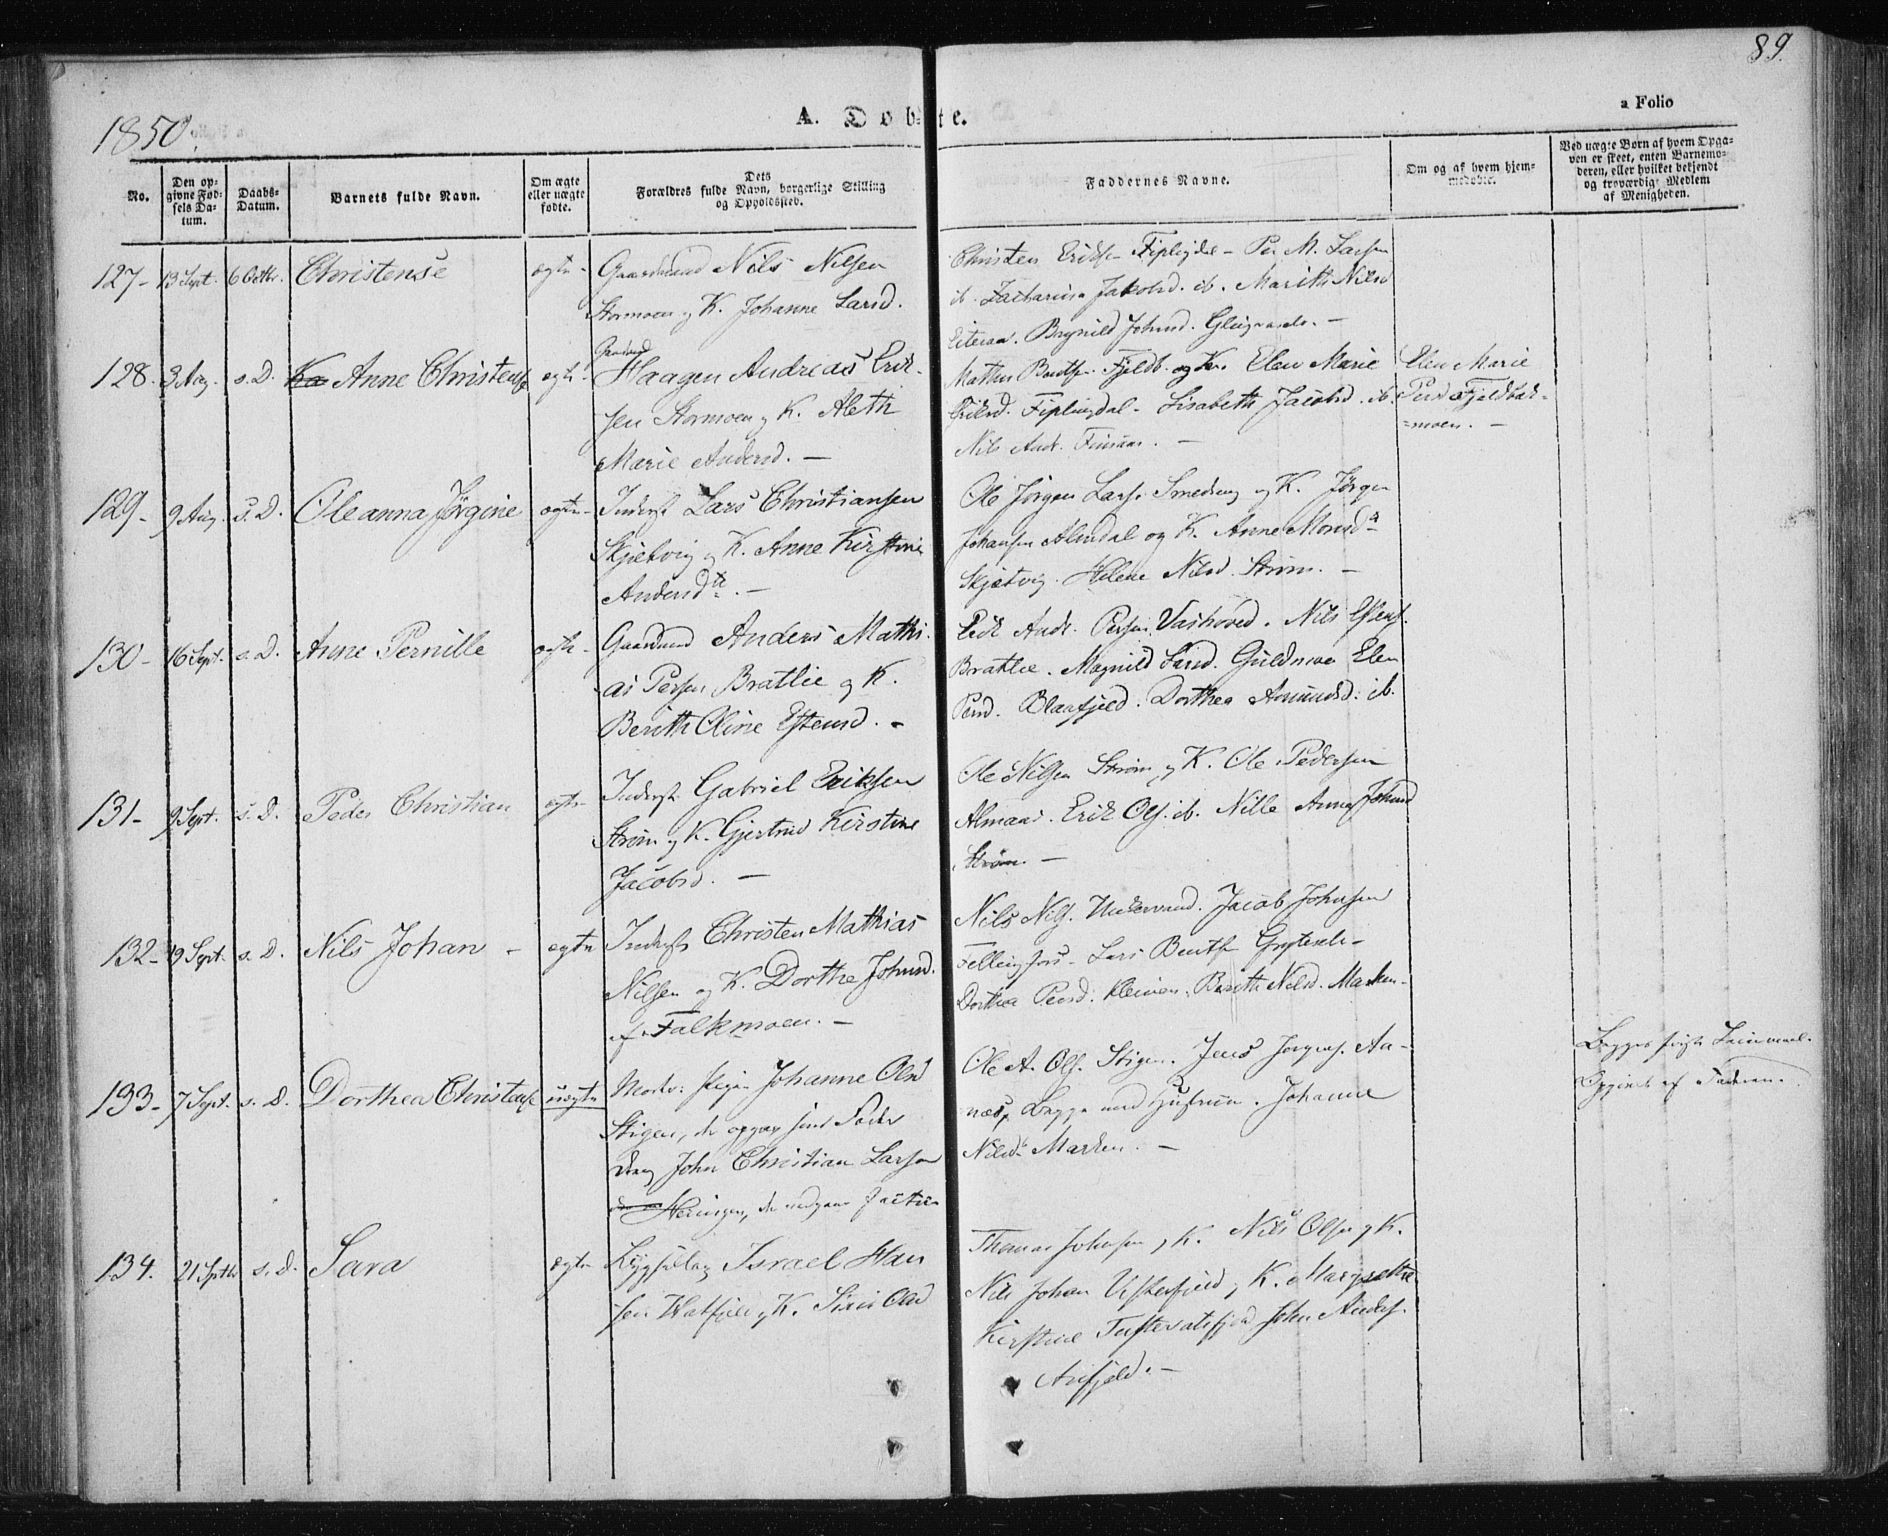 89.
a Folio
1850.
A. Døbte.
No.
Den op-
givne Fød-
sels Da-
tum.
Daabs-
Datum.
Barnets fulde Navn.
Om ægte
eller uægte
fødte.
Dets
Forældres fulde Navn, borgerlige Stilling
og Opholdssted.
Faddernes Navne.
Om og af hvem hjem-
medøbte.
Ved uægte Børn af hvem Opga-
ven er skeet, enten Barnemo-
deren, eller hvilket bekjendt
og troværdigt Medlem
af Menigheden.
127- 13 Sept. 6 Octbr. Christense ægte- Gaardmand Nils Nilsen
Stormoen og K. Johanne Larsd.
Christen Eriks. Fiplingdal - Per M. Larsen
ib. Zacharina Jakobsd. ib. Marith Nilsd
Eiteraa. Brynild Johnsd.
128. 3 Aug. s. D. Anne Christense ægte Gaardmd
Haagen Andreas Erik-
sen Stormoen og K. Aleth
Marie Andersd. -
Mathis Bentsen Fjeldb. og K. Elen Marie
Eriksd. Fiplingdal - Lisabeth Jacobsd. ib.
Nils Andr. -
Elen Marie
Persd. Fjeldbak=
=moen. -
129- 9 Aug. s. D. Oleanna Jørgine ægte- Inderst Lars Christiansen
Skjetvig og K. Anne Kirstine
Andersdtr. -
Ole Jørgen Lars. Smedseng og K. Jørgen
Johansen Almdal og K. Anne Monsdr
Skjætvig. Helene Nilsd. Strøm. -
130- 16 Sept. s. D. Anne Pernille ægte- Gaardmand Anders Mathi-
as Persen Bratlie og K.
Berith Oline Estensd. -
Erik Andr. Persen Vashoved. Nils Estens.
Bratlie. Magnild Larsd. Guldmoe Elen
Persd. Blaafjeld. Dorthea Asmundsd. ib.
131- 9 Sept. s. D. Peder Christian ægte Inderst Gabriel Eriksen
Strøm og K. Gjertrud Kirstine
Jacobsd. -
Ole Nilsen Strøm og K. Ole Pedersen
Almaas. Erik Ols. ib. Nille Anna Johnsd
Strøm. -
132- 19 Sept. s. D. Nils Johan - ægte Inderst Christen Mathias
Nilsen og K. Dorthe Johnsd.
af Falkmoen. -
Nils Nils. Undervand. Jacob Johnsen
Fellingfors - Lars Bents. Grytesele-
Dorthea Persd. Kleiven. Berith Nilsd. Marken-
133- 7 Sept. s. D. Dorthea Christense uægte Moder: Pigen Johanne Olsd
Stigen, der opgav sin Fader
Dreng John Christian Larsen
Heringen, der vedgaaer Factum
Ole A. Ols. Stigen. Jens Jørgens. Aa-
næs, begge med Hustruer. Johanne
Nilsdr Marken. -
Begges første Leiermaal.
Opgivet af Faderen. -
134. 21 Septbr s. d. Sara ægte Israel Han
sen Hatfjeld og K. Siris Olsd
Thomas Johnsen og K. Nils Olsen og K.
Nils Johan og K. Margrethe
Kirstine John Anders.
-